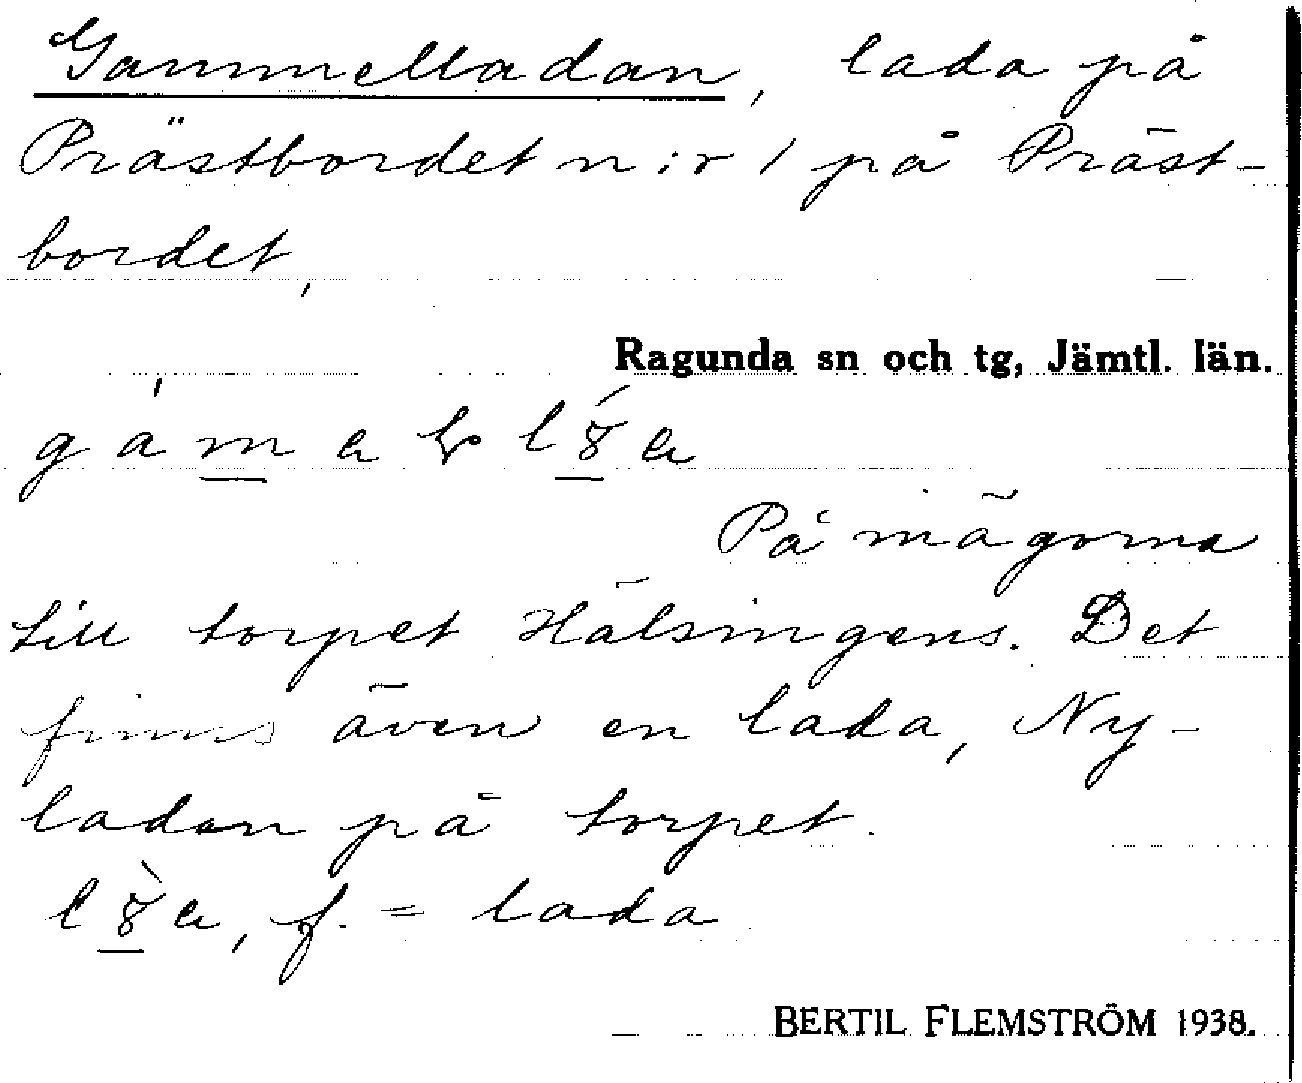 Gammelladan, lada på
Prästbordet n:r 1 på Präst-
bordet,
Ragunda sn och tg, Jämtl. län.
På inägorna
till torpet Hälsingens. Det
finns även en lada, Ny-
ladan på torpet.
f. = lada
BERTIL FLEMSTRÖM 1938.